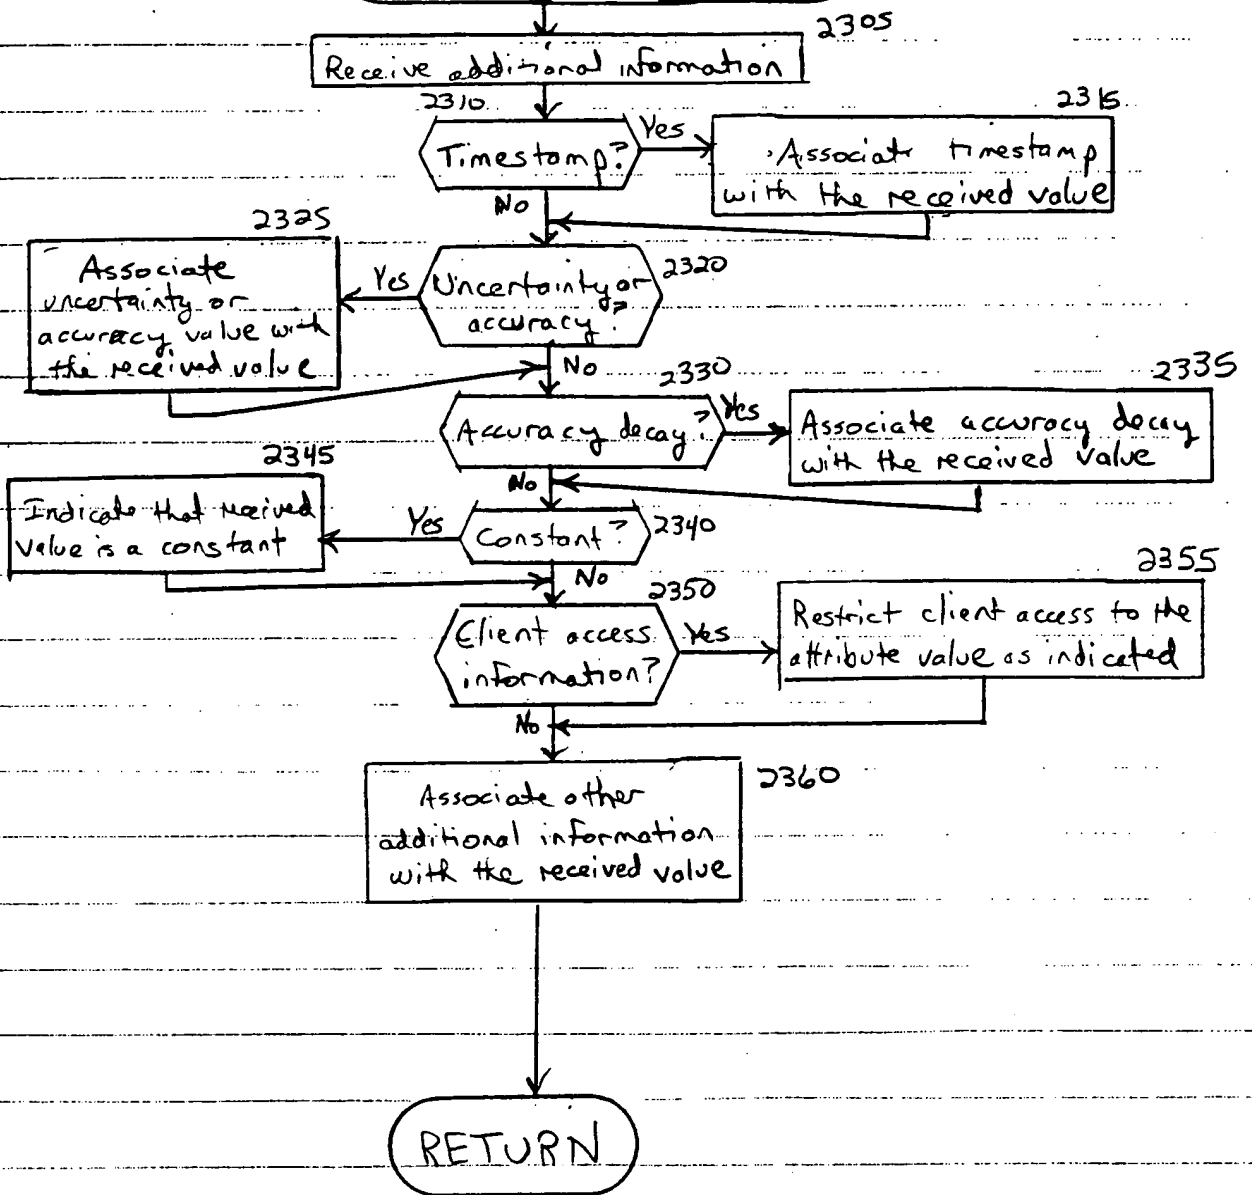 2305
Receive additional information
2310
Timestamp?
Yes
2315
Associate timestamp
with the received value
No
2325
Associate
uncertainty or
accuracy value with
the received value
Yes
Uncertainty or
accuracy?
2320
No
2330
Accuracy decay?
Yes
2335
Associate accuracy decay
with the received value
No
2345
Indicate that received
value is a constant
Yes
Constant?
2340
No
2350
Client access
information?
Yes
2355
Restrict client access to the
attribute value as indicated
No
2360
Associate other
additional information
with the received value
RETURN